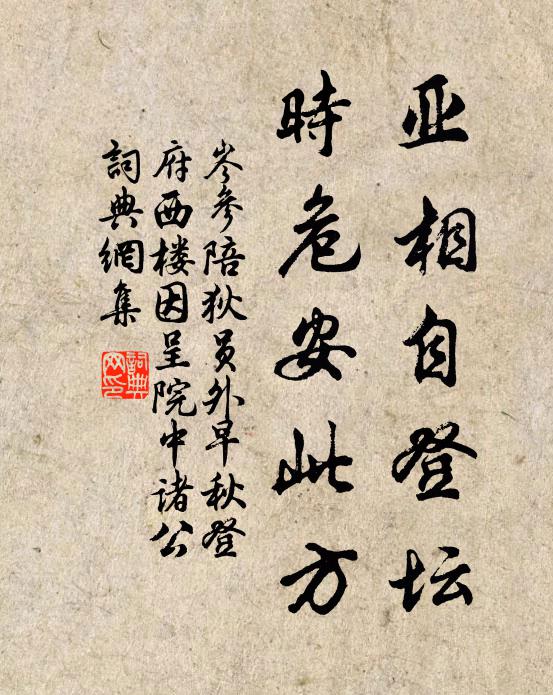 亚相自登坛
時危安此方
岑参陪狄员外早秋登
府西楼因呈院中诸公
詞典網集
詞典网印